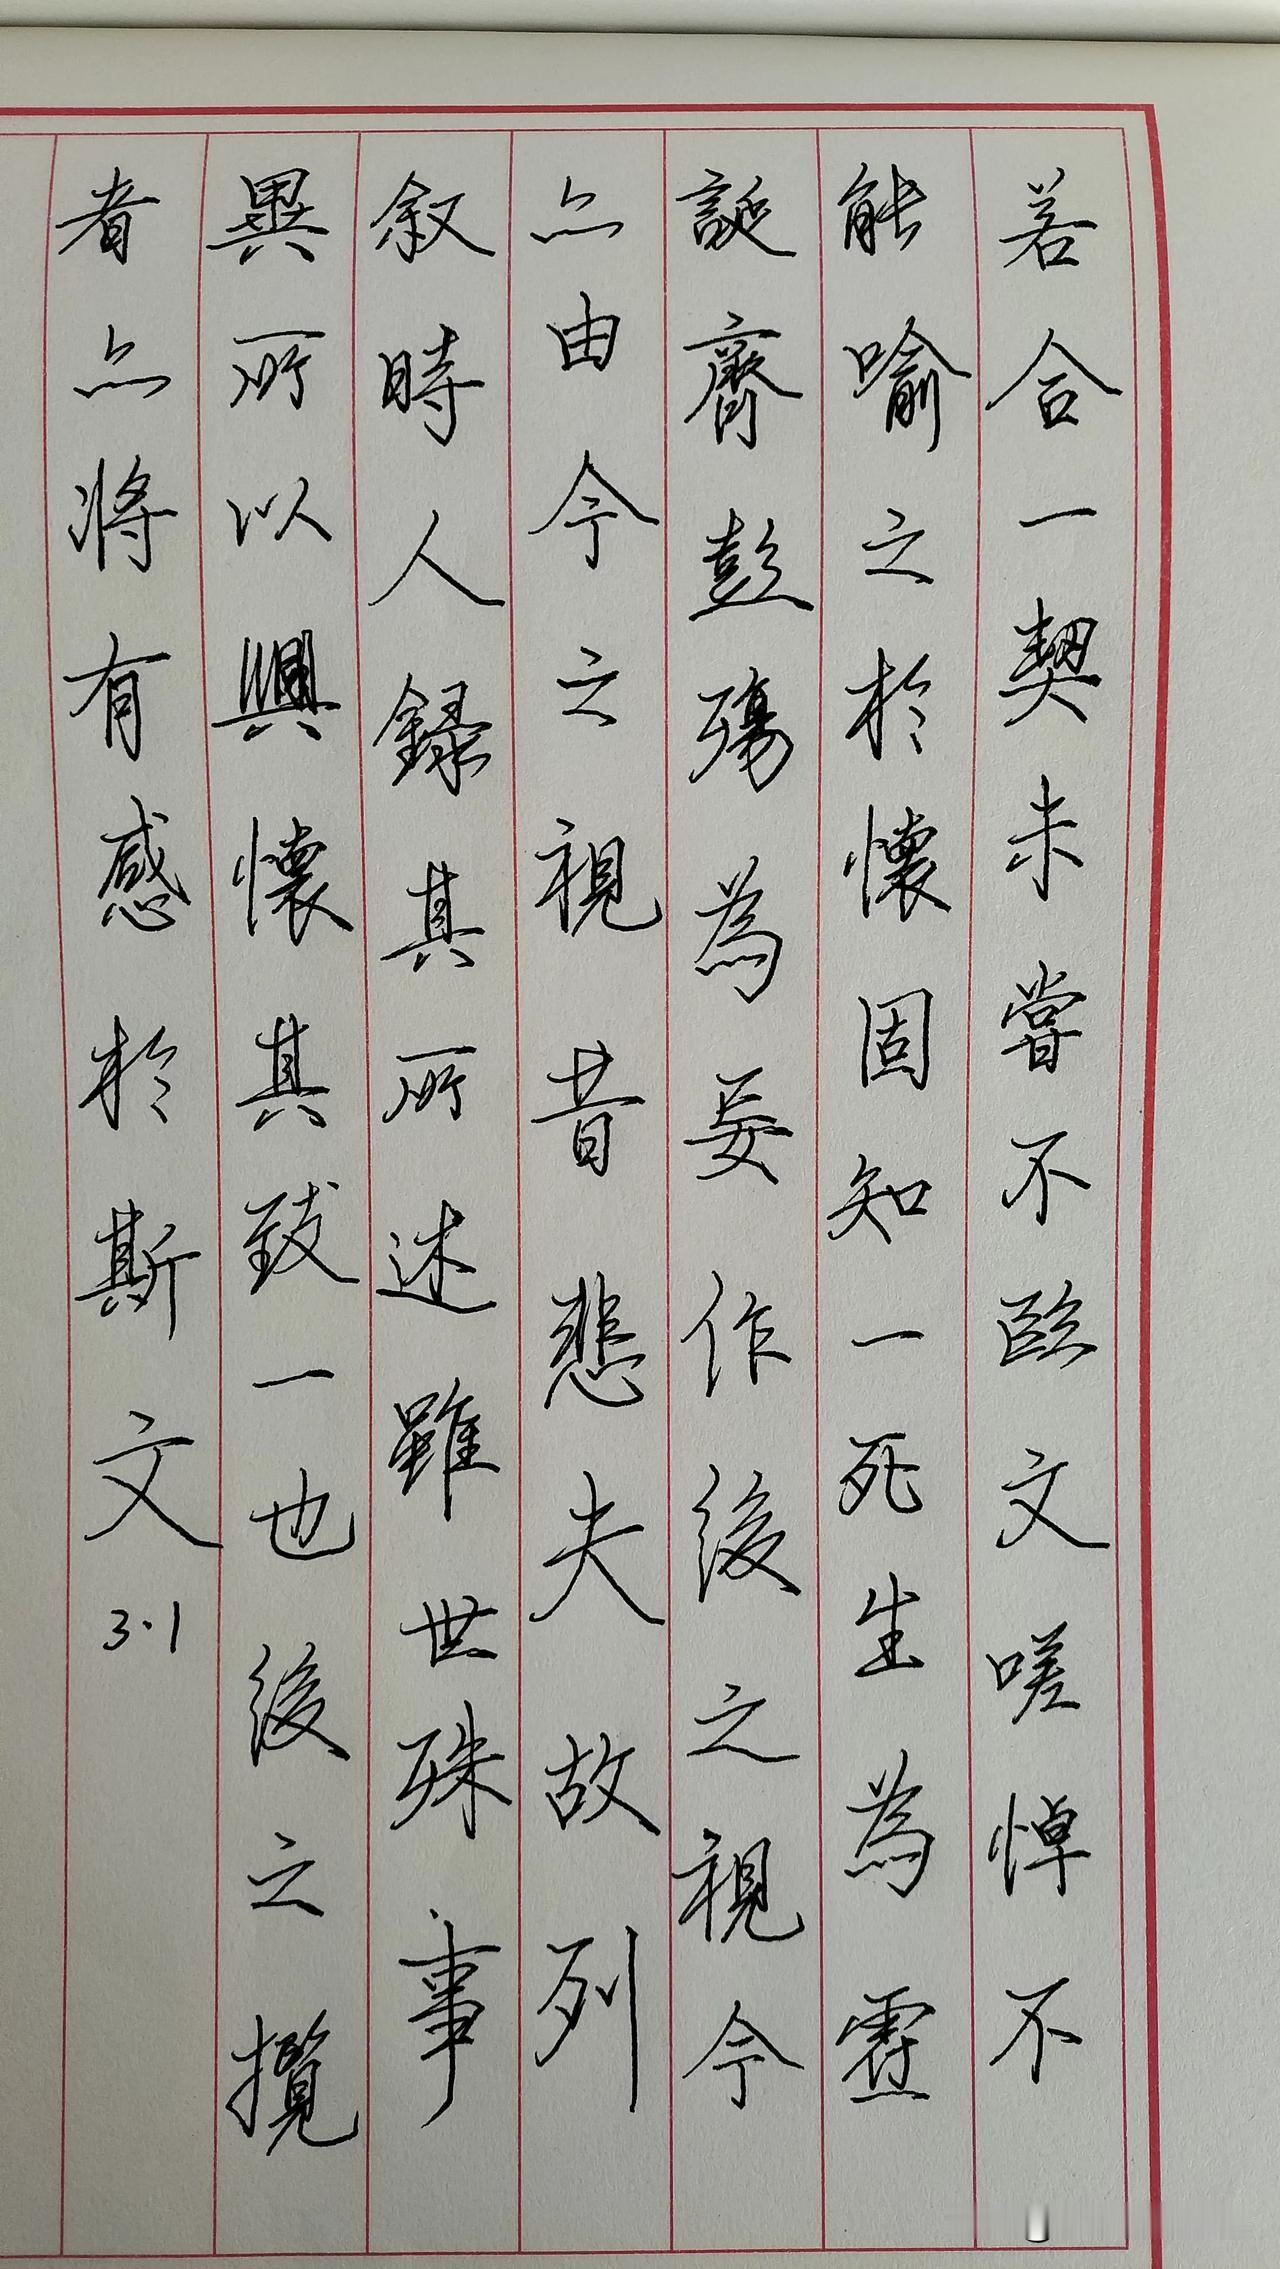 若合一契未嘗不臨文嗟悼不
能喻之於懷固知一死生為虛
誕齊彭殤為妄作後之視今
亦由今之視昔悲夫故列
叙時人録其所述雖世殊事
異所以興懷其致一也後之攬
者亦將有感於斯文
3·1